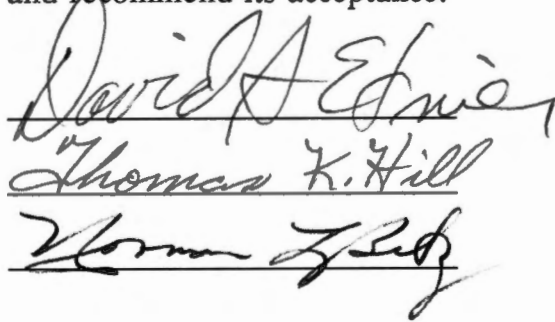 and recommend its acceptance:
David A Etnier
Thomas K. Hill
Norman L Betz